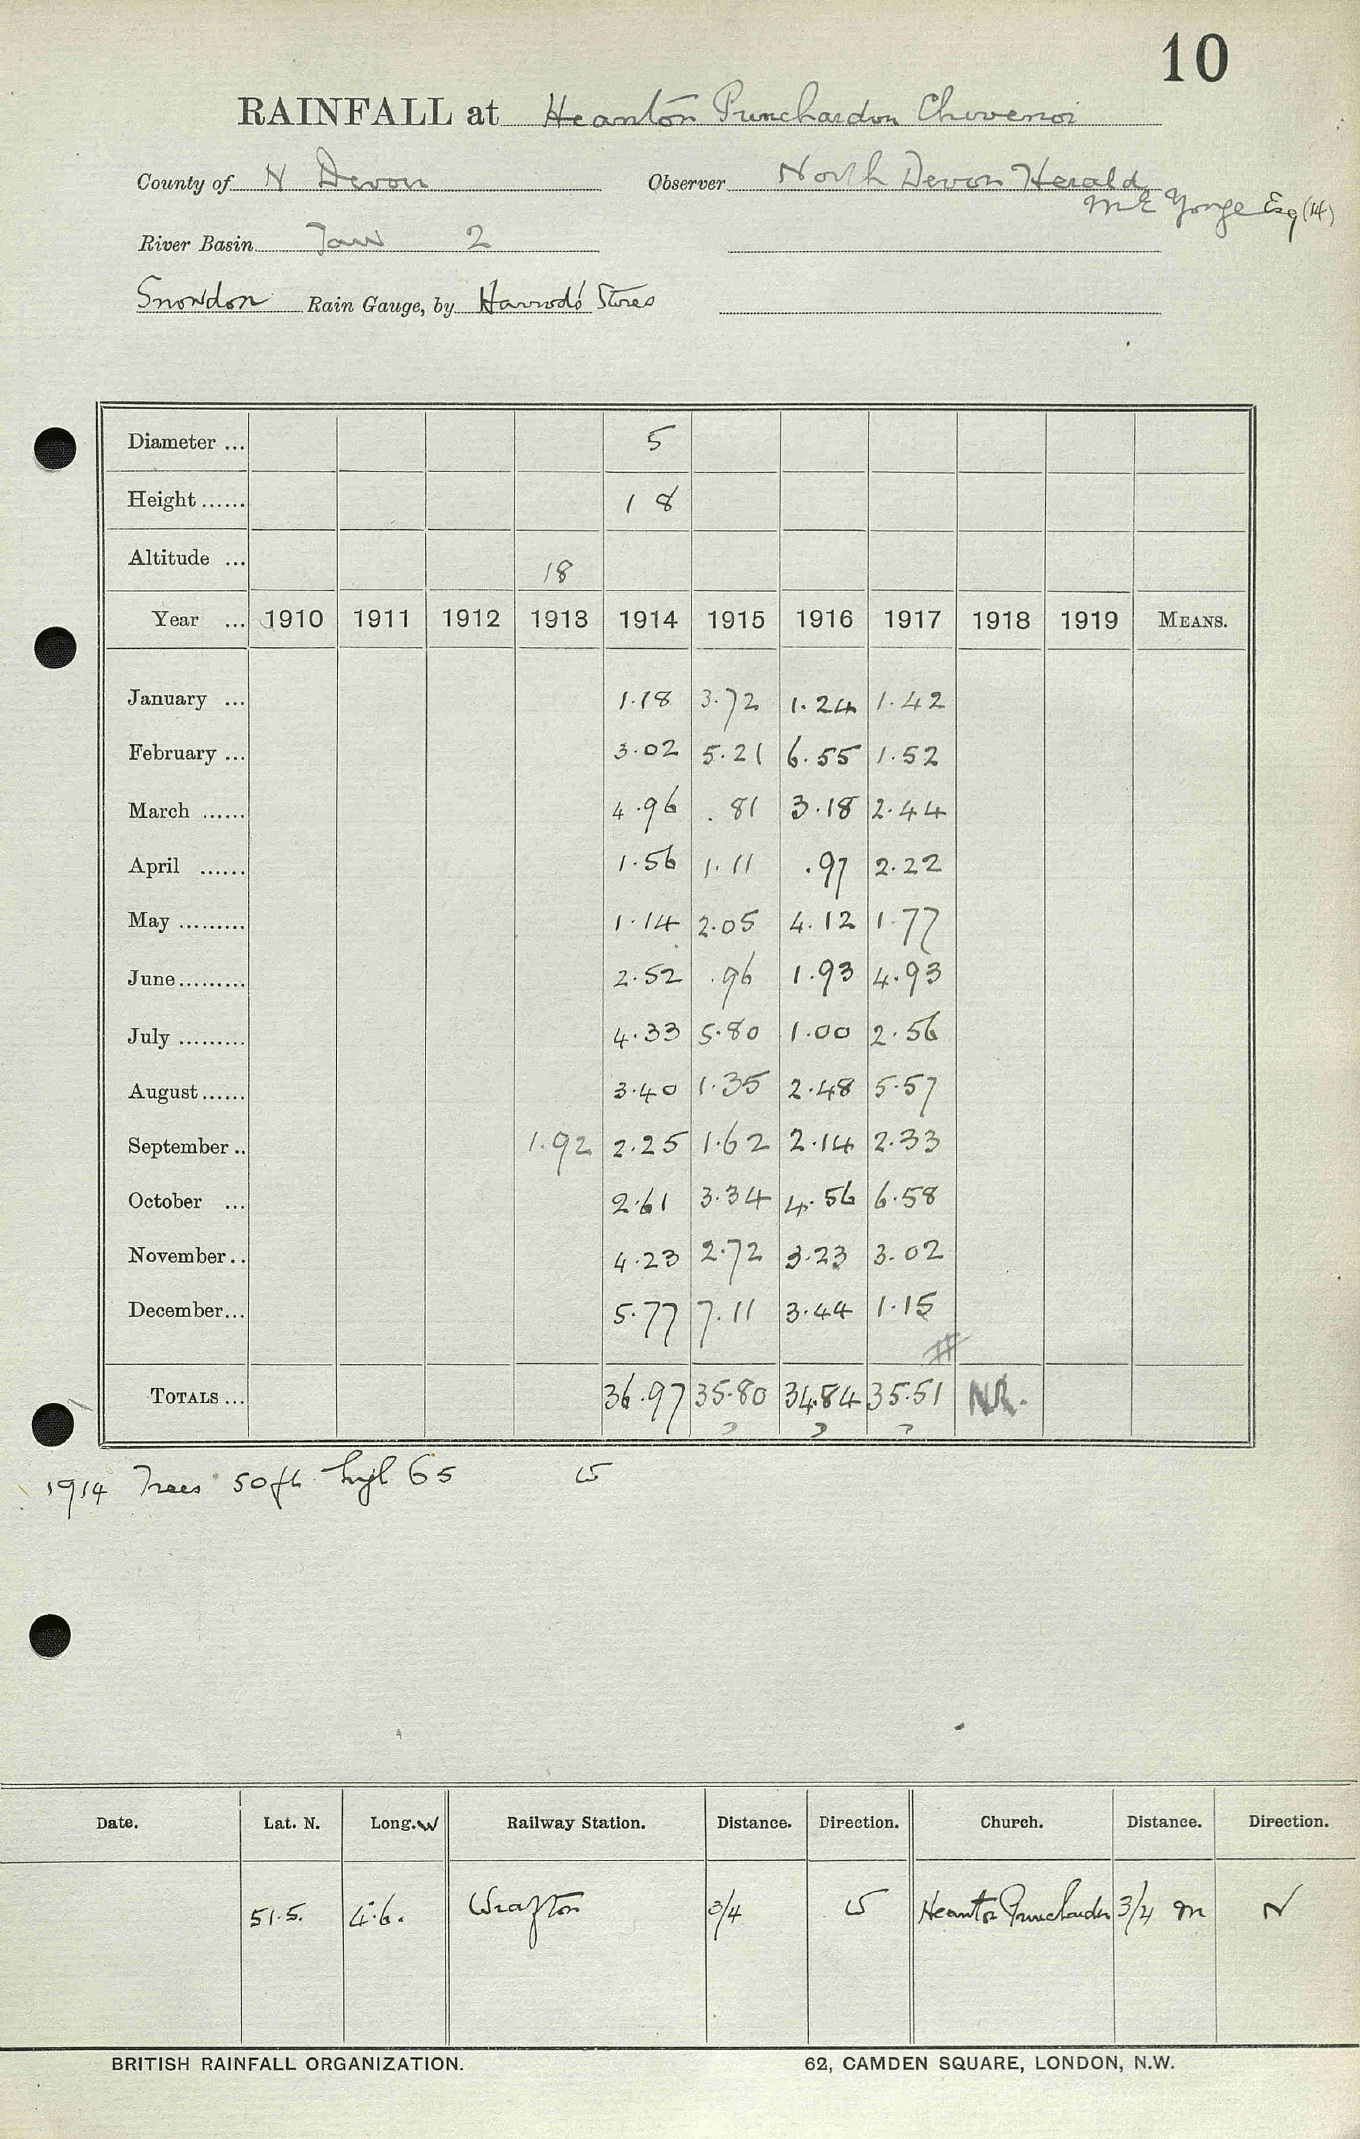 10
RAINFALL at Heanton Punchardon Chivenor
County of N Devon Observer North Devon Herald
M E Yonge Esq (14)
River Basin Taw 2
Snowdon Rain Gauge, by Harrod's Stores
Diameter ... 5
Height ...... 18
Altitude ... 18
Year ... 1910 1911 1912 1913 1914 1915 1916 1917 1918 1919 MEANS.
January ... 1.18 3.72 1.24 1.42
February ... 3.02 5.21 6.55 1.52
March ...... 4.96 .81 3.18 2.44
April ...... 1.56 1.11 .97 2.22
May ......... 1.14 2.05 4.12 1.77
June ......... 2.52 .96 1.93 4.93
July ......... 4.33 5.80 1.00 2.56
August ...... 3.40 1.35 2.48 5.57
September .. 1.92 2.25 1.62 2.14 2.33
October ... 2.61 3.34 4.56 6.58
November .. 4.23 2.72 3.23 3.02
December ... 5.77 7.11 3.44 1.15
#
TOTALS ... 36.97 35.80 34.84 35.51 N.R.
? ? ?
1914 Trees 50ft high 65 W
Date. Lat. N. Long. W Railway Station. Distance. Direction. Church. Distance. Direction.
51.5. 4.6. Wrafton 3/4 W Heanton Punchardon 3/4 m N
BRITISH RAINFALL ORGANIZATION. 62, CAMDEN SQUARE, LONDON, N.W.